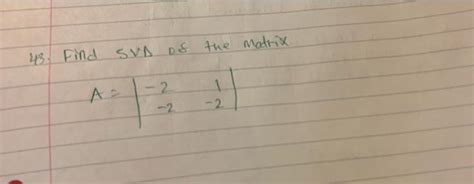 43. Find SVD of the Matrix
A = | -2 1 |
| -2 -2 |